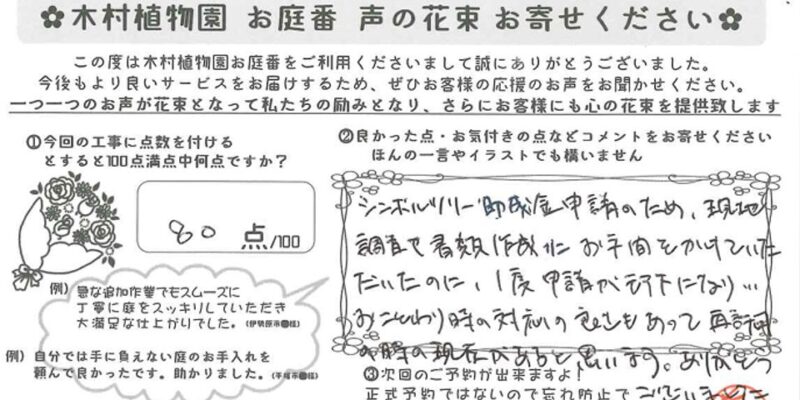 ✿木村植物園 お庭番 声の花束 お寄せください✿
この度は木村植物園お庭番をご利用くださいまして誠にありがとうございました。
今後もより良いサービスをお届けするため、ぜひお客様の応援のお声をお聞かせください。
一つ一つのお声が花束となって私たちの励みとなり、さらにお客様にも心の花束を提供致します
①今回の工事に点数を付ける
とすると100点満点中何点ですか？
80 点/100
例）急な追加作業でもスムーズに
丁寧に庭をスッキリしていただき
大満足な仕上がりでした。(伊勢原市 様)
例）自分では手に負えない庭のお手入れを
頼んで良かったです。助かりました。(平塚市 様)
②良かった点・お気付きの点などコメントをお寄せください
ほんの一言やイラストでも構いません
シンボルツリー助成金申請のため、現地
調査や書類作成にお手間をかけていた
だいたのに、1度申請が却下になり…
おことわり時の対応の良さもあって再訪問
の時の現在があると思います。ありがとう
ございました
③次回のご予約が出来ますよ！
正式予約ではないので忘れ防止で